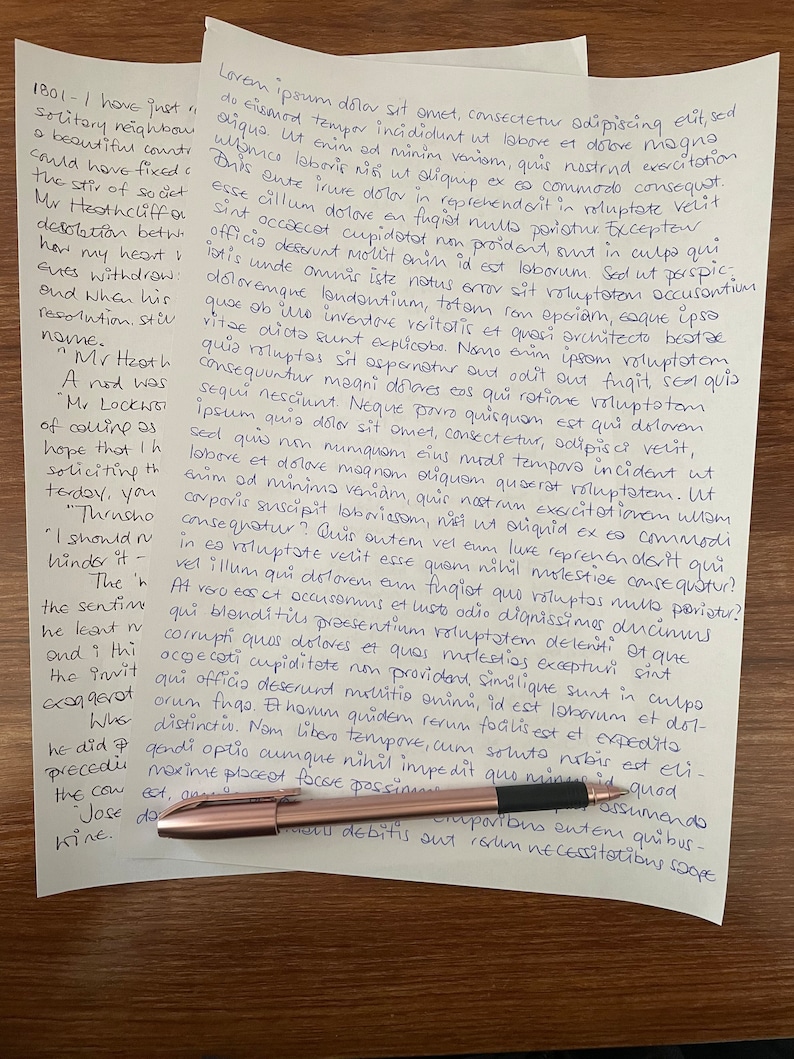 1801 - I have just r
solitary neighbou
a beautiful countr
could have fixed
the stir of societ
Mr Heathcliff an
desolation betw
how my heart
eyes withdraw
and when his
resolution, still
name.
"Mr Heath
A nod was
"Mr Lockwo
of calling as
hope that I h
soliciting th
terday, you
"Thrusho
"I should n
hinder it -
The 'h
the sentim
he leant
and i thi
the invit
exaggerat
Whe
he did p
precedi
the cou
"Jose
wine.
Lorem ipsum dolor sit amet, consectetur adipiscing elit, sed
do eiusmod tempor incididunt ut labore et dolore magna
aliqua. Ut enim ad minim veniam, quis nostrud exercitation
ullamco laboris nisi ut aliquip ex ea commodo consequat.
Duis aute irure dolor in reprehenderit in voluptate velit
esse cillum dolore eu fugiat nulla pariatur. Excepteur
sint occaecat cupidatat non proident, sunt in culpa qui
officia deserunt mollit anim id est laborum. Sed ut perspic-
iatis unde omnis iste natus error sit voluptatem accusantium
doloremque laudantium, totam rem aperiam, eaque ipsa
quae ab illo inventore veritatis et quasi architecto beatae
vitae dicta sunt explicabo. Nemo enim ipsam voluptatem
quia voluptas sit aspernatur aut odit aut fugit, sed quia
consequuntur magni dolores eos qui ratione voluptatem
sequi nesciunt. Neque porro quisquam est qui dolorem
ipsum quia dolor sit amet, consectetur, adipisci velit,
sed quia non numquam eius modi tempora incident ut
labore et dolore magnam aliquam quaerat voluptatem. Ut
enim ad minima veniam, quis nostrum exercitationem ullam
corporis suscipit laboriosam, nisi ut aliquid ex ea commodi
consequatur? Quis autem vel eum iure reprehenderit qui
in ea voluptate velit esse quam nihil molestiae consequatur?
vel illum qui dolorem eum fugiat quo voluptas nulla pariatur?
At vero eos et accusamus et iusto odio dignissimos ducimus
qui blanditiis praesentium voluptatem deleniti at que
corrupti quos dolores et quas molestias excepturi sint
occaecati cupiditate non provident, similique sunt in culpa
qui officia deserunt mollitia animi, id est laborum et dol-
orum fuga. Et harum quidem rerum facilis est et expedita
distinctio. Nam libero tempore, cum soluta nobis est eli-
gendi optio cumque nihil impedit quo minus id quod
maxime placeat facere possimus
est, assumenda
emporibus autem quibus-
debitis aut rerum necessitatibus saepe